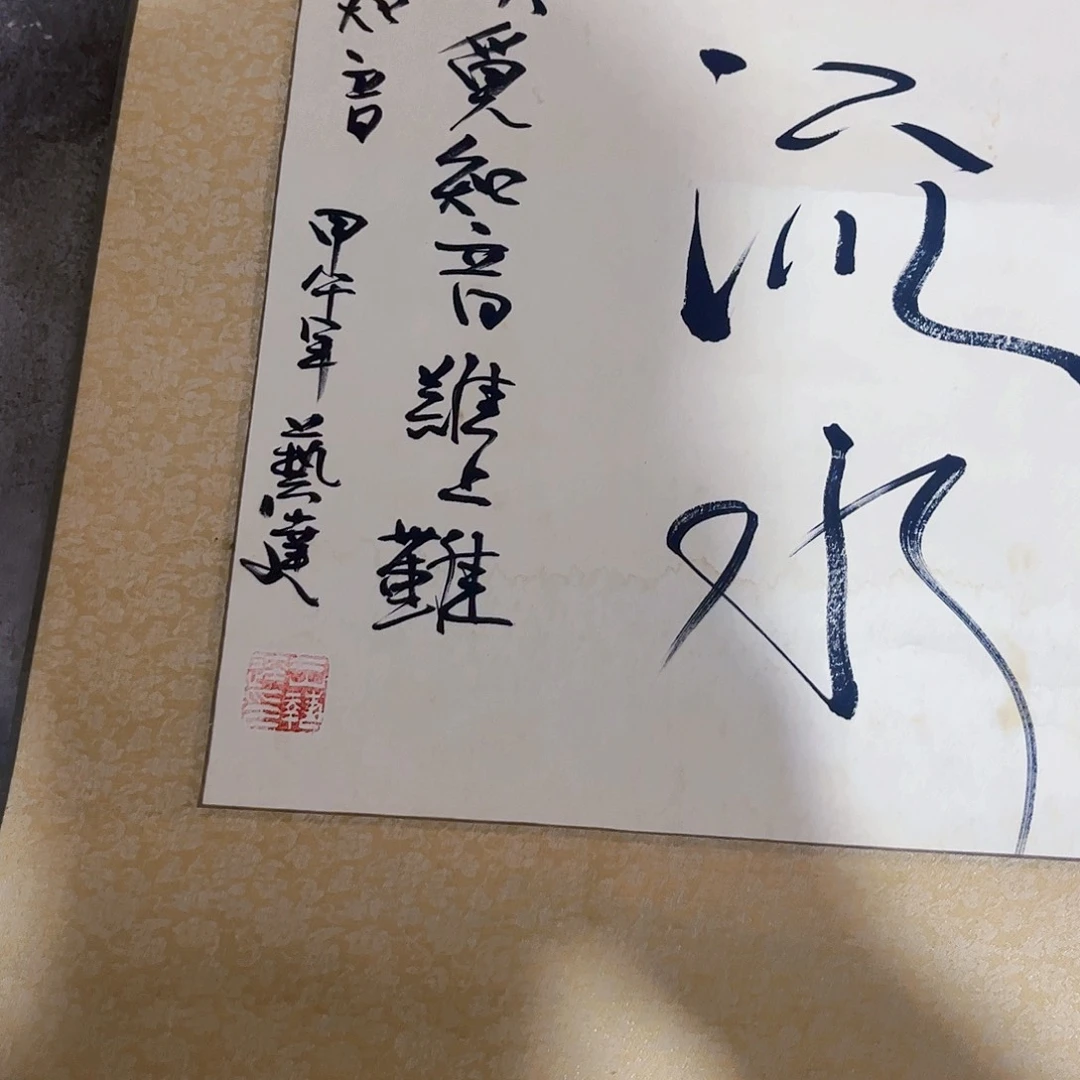 流水
覓知音難上難
知音 甲午年 藝達